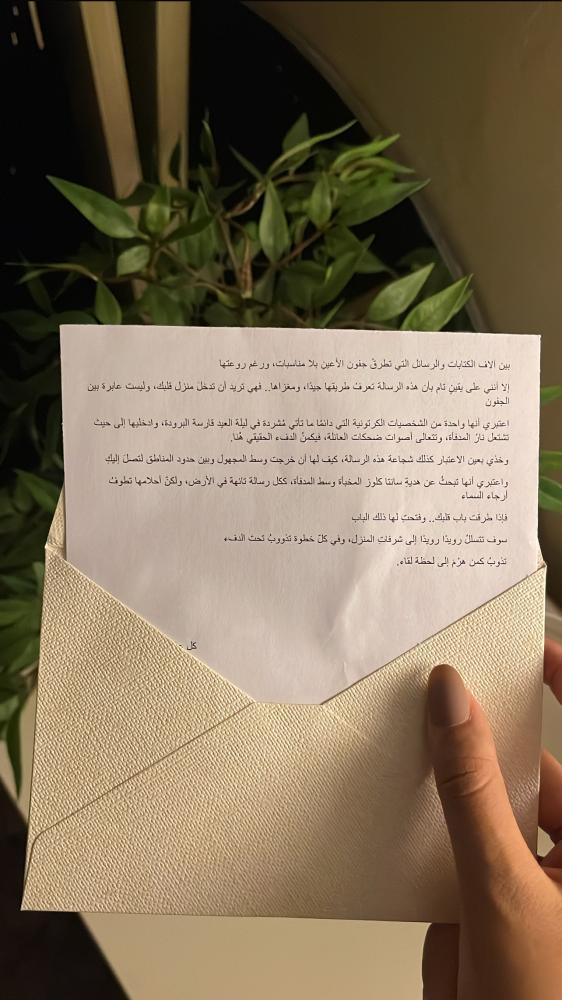 بين آلاف الكتابات والرسائل التي تطرقُ جفون الأعين بلا مناسبات، ورغم روعتها
إلا أنني على يقينٍ تام بأن هذه الرسالة تعرفُ طريقها جيدًا، ومغزاها.. فهي تريد أن تدخلَ منزل قلبك، وليست عابرة بين
الجفون
اعتبري أنها واحدة من الشخصيات الكرتونية التي دائمًا ما تأتي مُشردة في ليلة العيد قارسة البرودة، وادخليها إلى حيث
تشتعل نارُ المدفأة، وتتعالى أصوات ضحكات العائلة، فيكمنُ الدفء الحقيقي هُنا.
وخذي بعين الاعتبار كذلك شجاعة هذه الرسالة، كيف لها أن خرجت وسط المجهول وبين حدود المناطق لتصلَ إليكِ
واعتبري أنها تبحثُ عن هديةِ سانتا كلوز المخبأة وسط المدفأة، ككل رسالة تائهة في الأرض، ولكنّ أحلامها تطوفُ
أرجاء السماء
فإذا طرقت باب قلبك.. وفتحتِ لها ذلك الباب
سوف تتسللُ رويدًا رويدًا إلى شرفاتِ المنزل، وفي كلّ خطوة تذووبُ تحت الدفء
تذوبُ كمن هرْم إلى لحظة لقاء.
كل